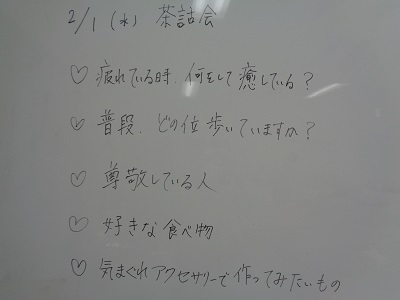 2/1(水) 茶話会
♡ 疲れている時、何をして癒している?
♡ 普段、どの位歩いていますか?
♡ 尊敬している人
♡ 好きな食べ物
♡ 気まぐれアクセサリーで作ってみたいもの